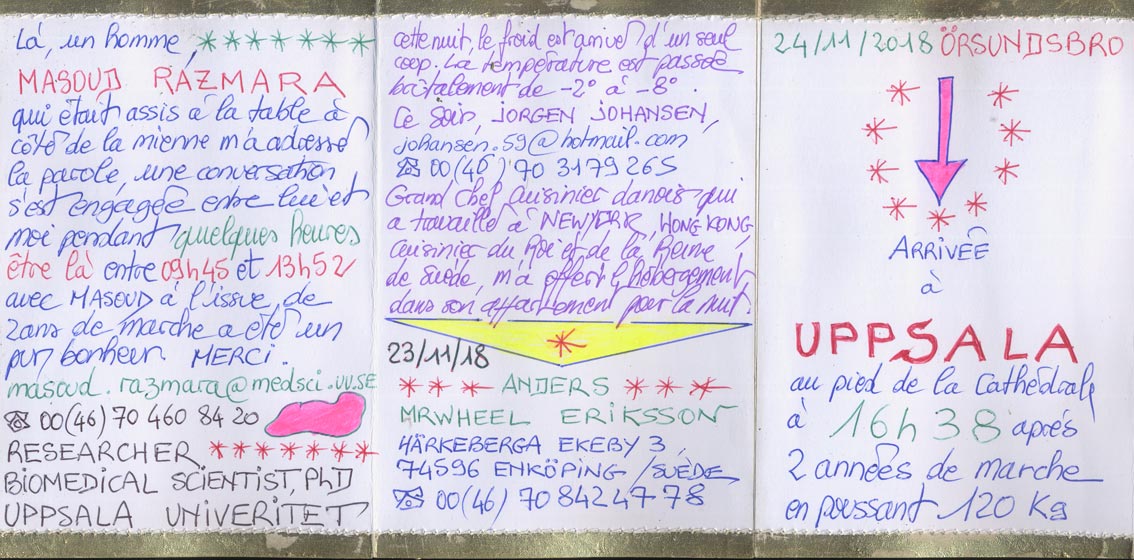 Là, un homme, *******
MASOUD RAZMARA
qui était assis à la table à
côté de la mienne m'a adressé
la parole, une conversation
s'est engagée entre lui et
moi pendant quelques heures
être là entre 09h45 et 13h52
avec MASOUD à l'issue de
2 ans de marche a été un
pur bonheur MERCI.
masoud.razmara@medsci.uu.se
☎ 00(46) 70 460 84 20
RESEARCHER *******
BIOMEDICAL SCIENTIST, PhD
UPPSALA UNIVERITET
cette nuit, le froid est arrivé d'un seul
coup. La température est passée
brutalement de -2° à -8°.
Ce soir, JORGEN JOHANSEN,
johansen.59@hotmail.com
☎ 00(46) 70 3179265
Grand Chef Cuisinier danois qui
a travaillé à NEWYORK, HONG KONG,
Cuisinier du Roi et de la Reine
de Suède, m'a offert l'hébergement
dans son appartement pour la nuit.
*
23/11/18
*** ANDERS ***
MRWHEEL ERIKSSON
HÄRKEBERGA EKEBY 3,
74596 ENKÖPING / SUÈDE
☎ 00(46) 70 842 47 78
24/11/2018 ÖRSUNDSBRO
ARRIVÉE
à
UPPSALA
au pied de la Cathédrale
à 16h38 après
2 années de marche
en poussant 120 Kg